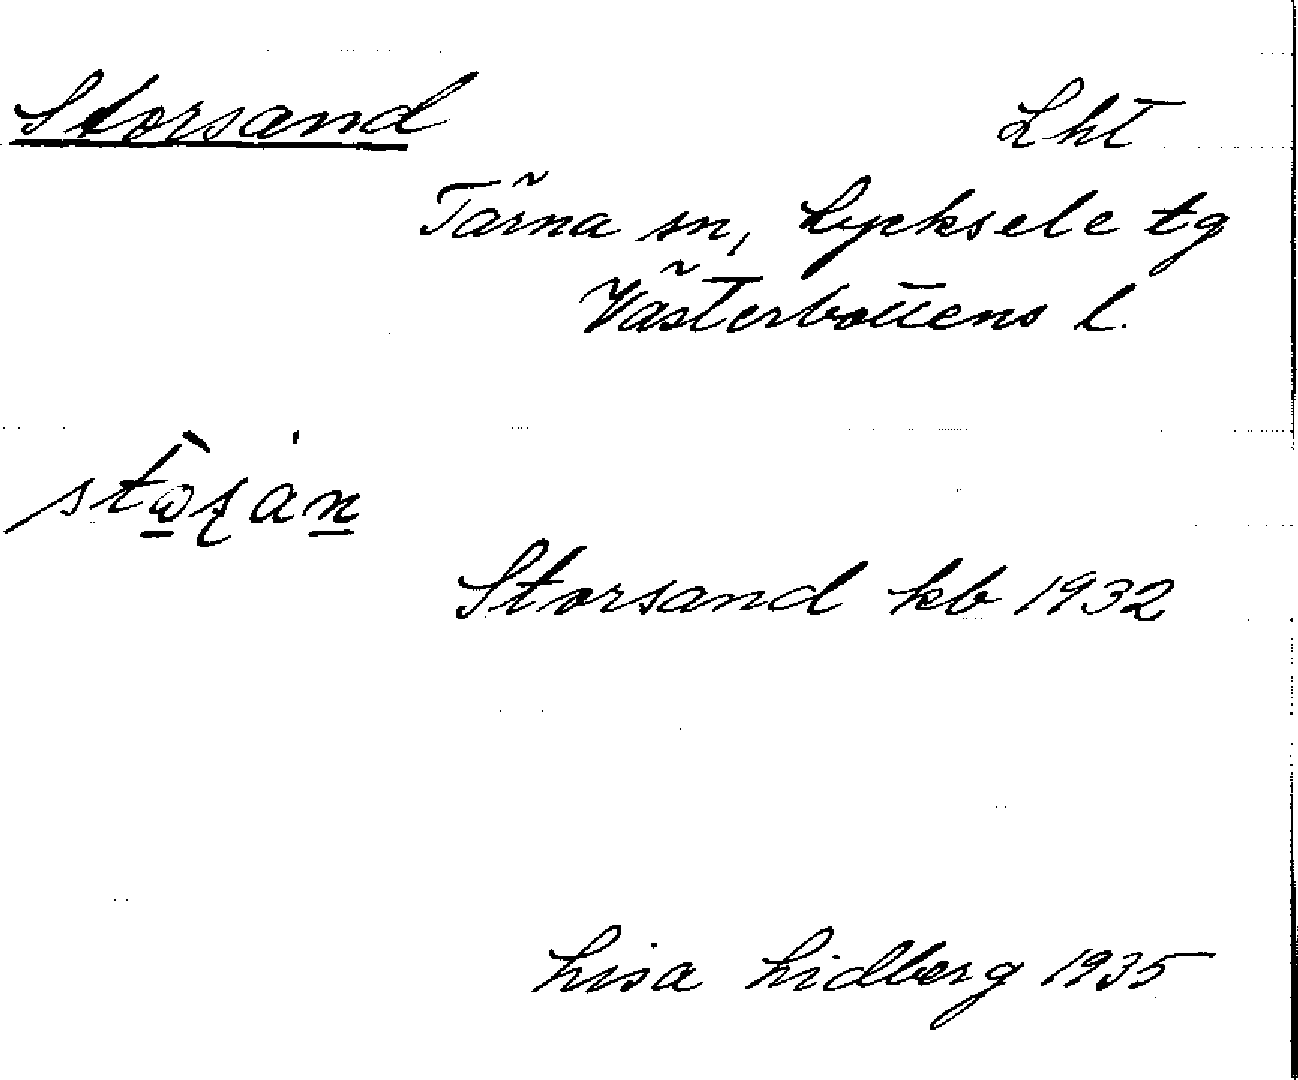 Storsand
Lht
Tärna sn, Lycksele tg
Västerbottens l.
Storsand kb 1932
Lisa Lidberg 1935